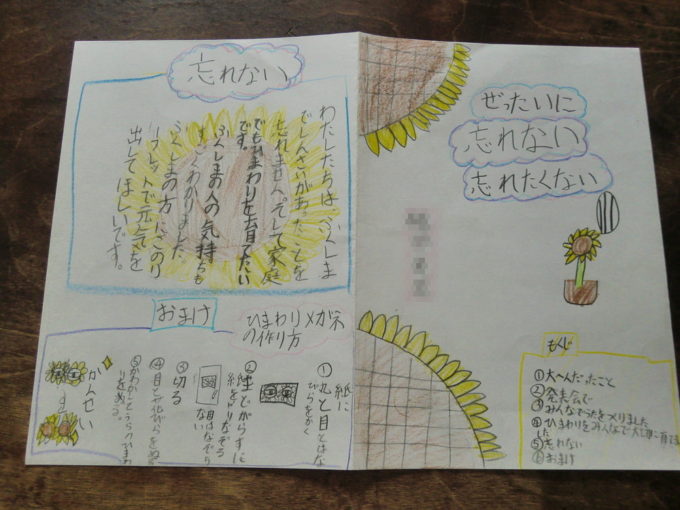 ぜったいに
忘れない
忘れたくない
もくじ
①大へんだったこと
②発表会で
③みんなでうたをつくりました
④ひまわりをみんなで大切に育てま
した
⑤忘れない
⑥おまけ
忘れない
わたしたちはふくしま
でしんさいがあったことを
忘れません。そして家庭
でもひまわりを育てたい
です。
ふくしまの人の気持ちも
すごくわかりました。
ふくしまの方にこのり
ーフレットで元気を
出してほしいです。
おまけ
ひまわりメガネ
の作り方
①紙に
丸と目とはな
びらをかく
②
紙をなぞる
③切る
目はなぞら
ない
④目と花びらをぬる
⑤
かんせい